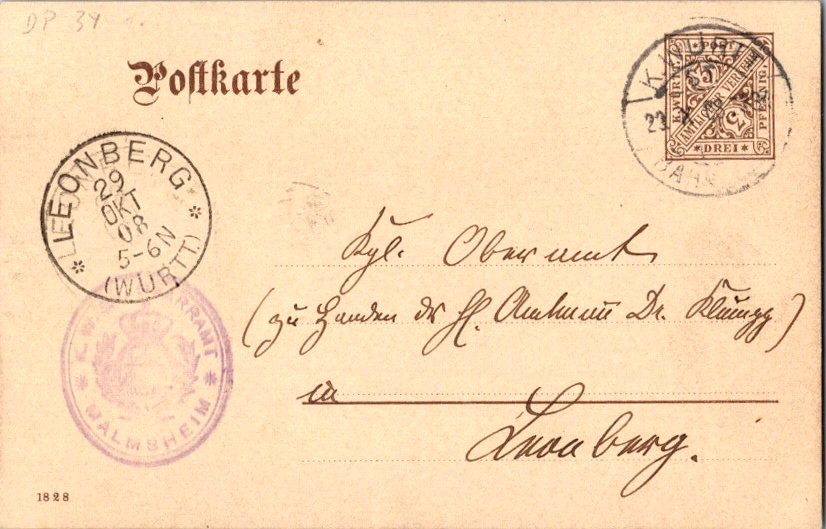 DP 34
Postkarte
K. WÜRTT. POST
AMTLICHER VERKEHR
PFENNIG
3
3
* DREI *
K. WÜRTT.
BAHN
* LEONBERG *
29
OKT
08
5-6 N
(WÜRTT.)
Kgl. Oberamt
(zu Handen des H. Amtmann Dr.
in
Leonberg.
K. W. PFARRAMT
* MALMSHEIM *
1828